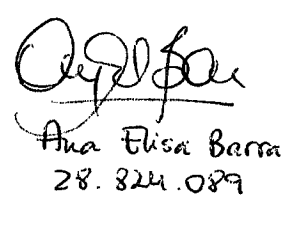 Ana Elisa Barra
28.824.089